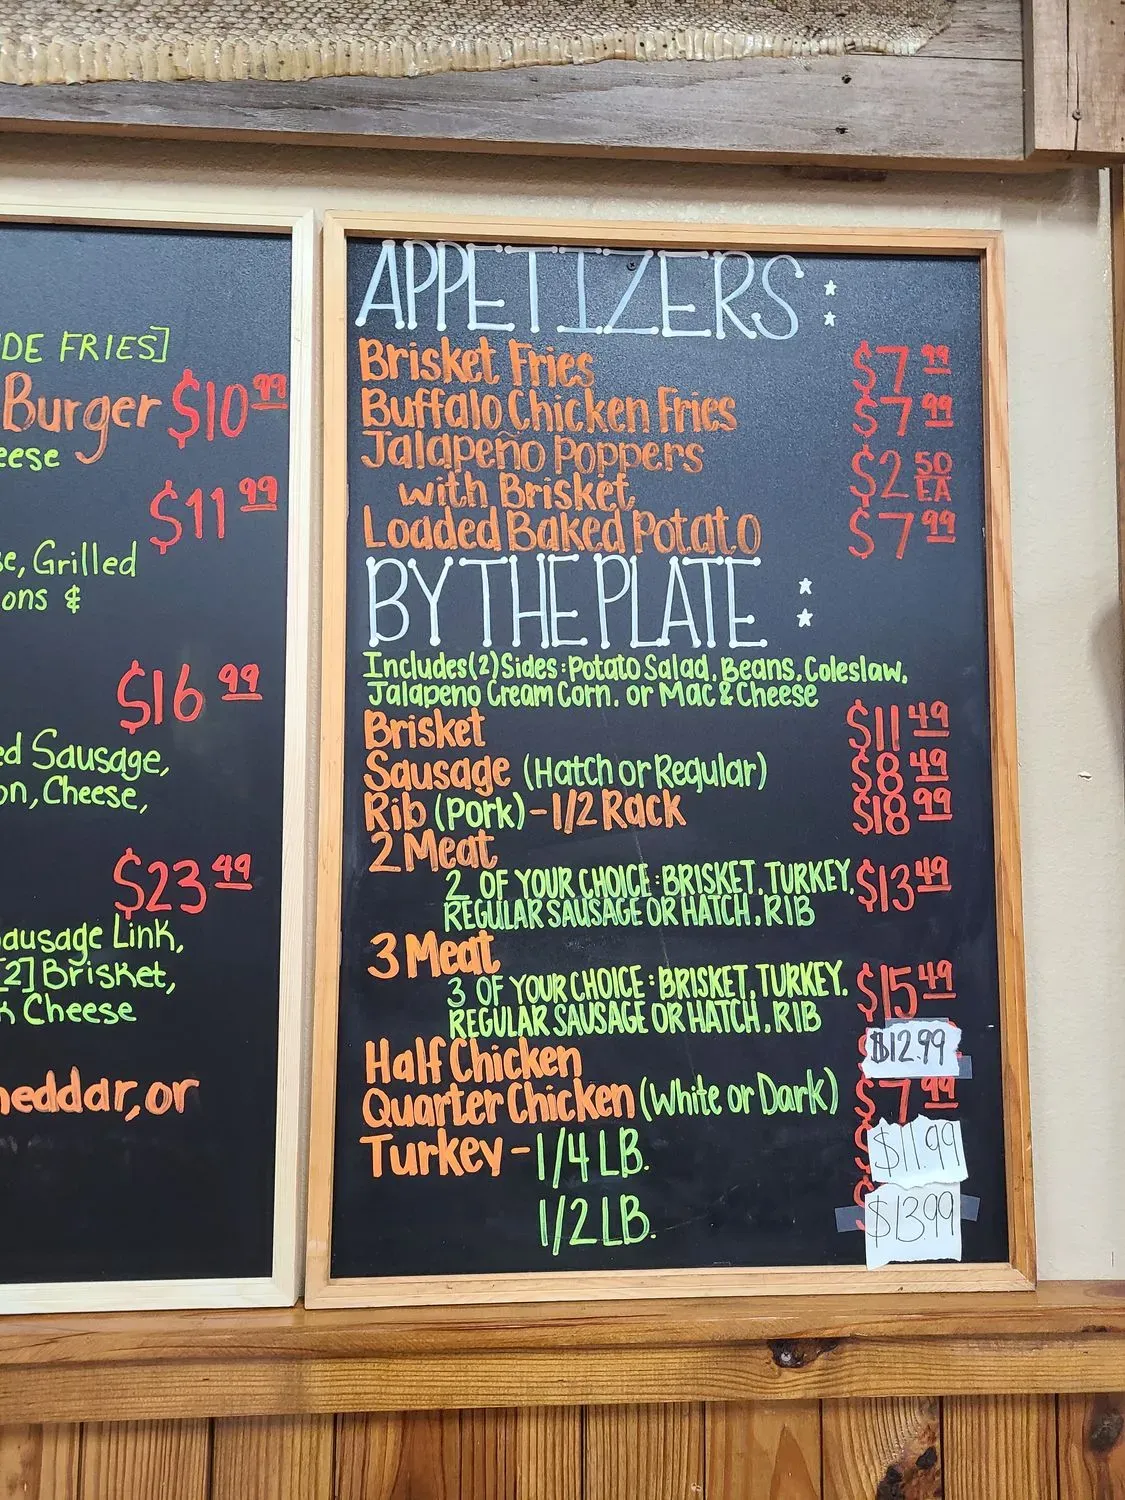 DE FRIES]
Burger $10.99
eese
$11.99
se, Grilled
ons &
$16.99
ed Sausage,
on, Cheese,
$23.49
ausage Link,
[2] Brisket,
k Cheese
heddar, or
APPETIZERS:
Brisket Fries $7.99
Buffalo Chicken Fries $7.99
Jalapeño Poppers $2.50 EA
with Brisket
Loaded Baked Potato $7.99
BY THE PLATE:
Includes (2) Sides: Potato Salad, Beans, Coleslaw,
Jalapeno Cream Corn, or Mac & Cheese
Brisket $11.49
Sausage (Hatch or Regular) $8.49
Rib (Pork) - 1/2 Rack $18.99
2 Meat
2 OF YOUR CHOICE: BRISKET, TURKEY, $13.49
REGULAR SAUSAGE OR HATCH, RIB
3 Meat
3 OF YOUR CHOICE: BRISKET, TURKEY, $15.49
REGULAR SAUSAGE OR HATCH, RIB
Half Chicken $12.99
Quarter Chicken (White or Dark) $7.99
Turkey - 1/4 LB. $11.99
1/2 LB. $13.99